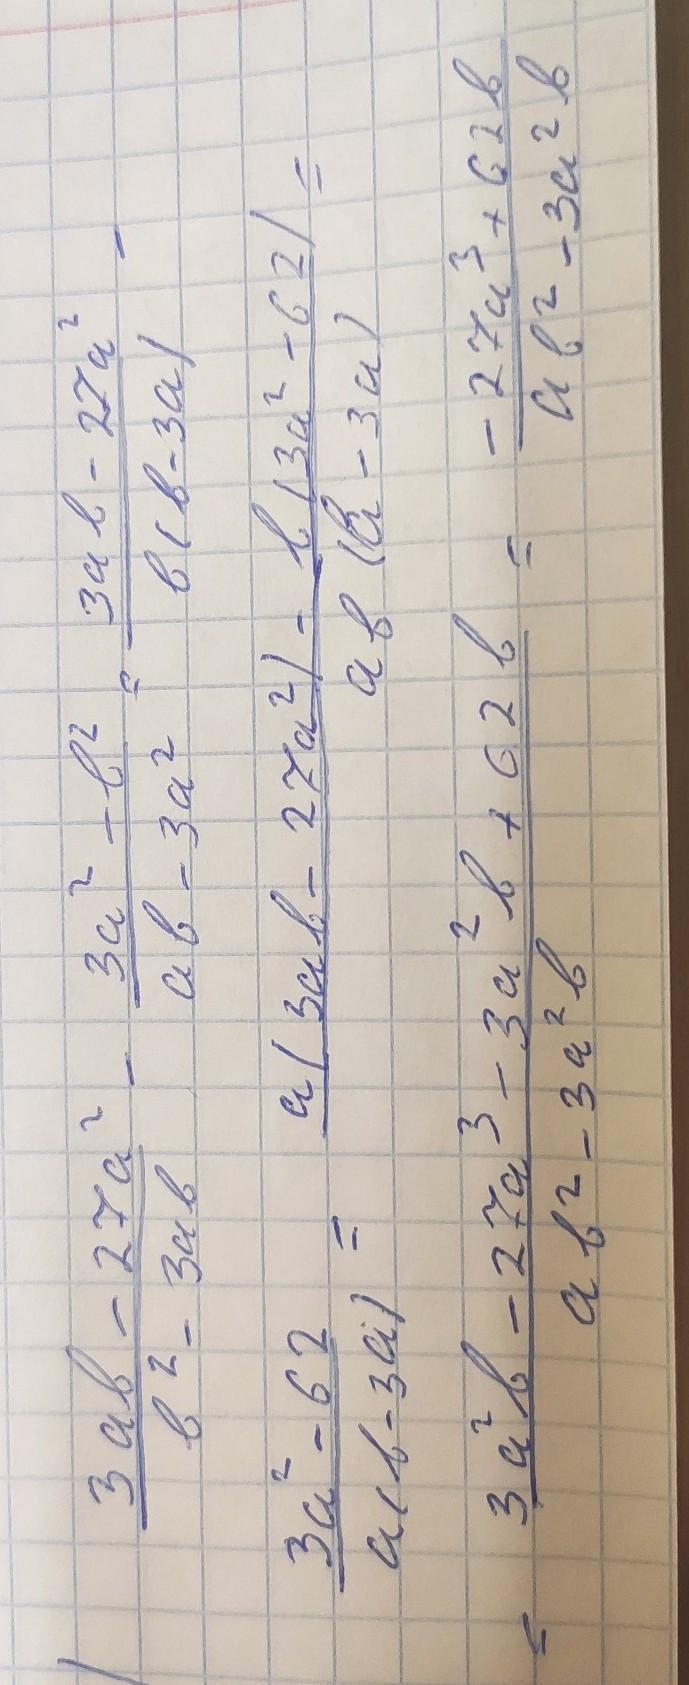 3ab - 27a² / b² - 3ab - 3a² - b² / ab - 3a² = 3ab - 27a² / b(b - 3a) -
3a² - 62 / a(b - 3a) = a(3ab - 27a²) - b(3a² - 62) / ab(b - 3a) =
= 3a²b - 27a³ - 3a²b + 62b / ab² - 3a²b = -27a³ + 62b / ab² - 3a²b